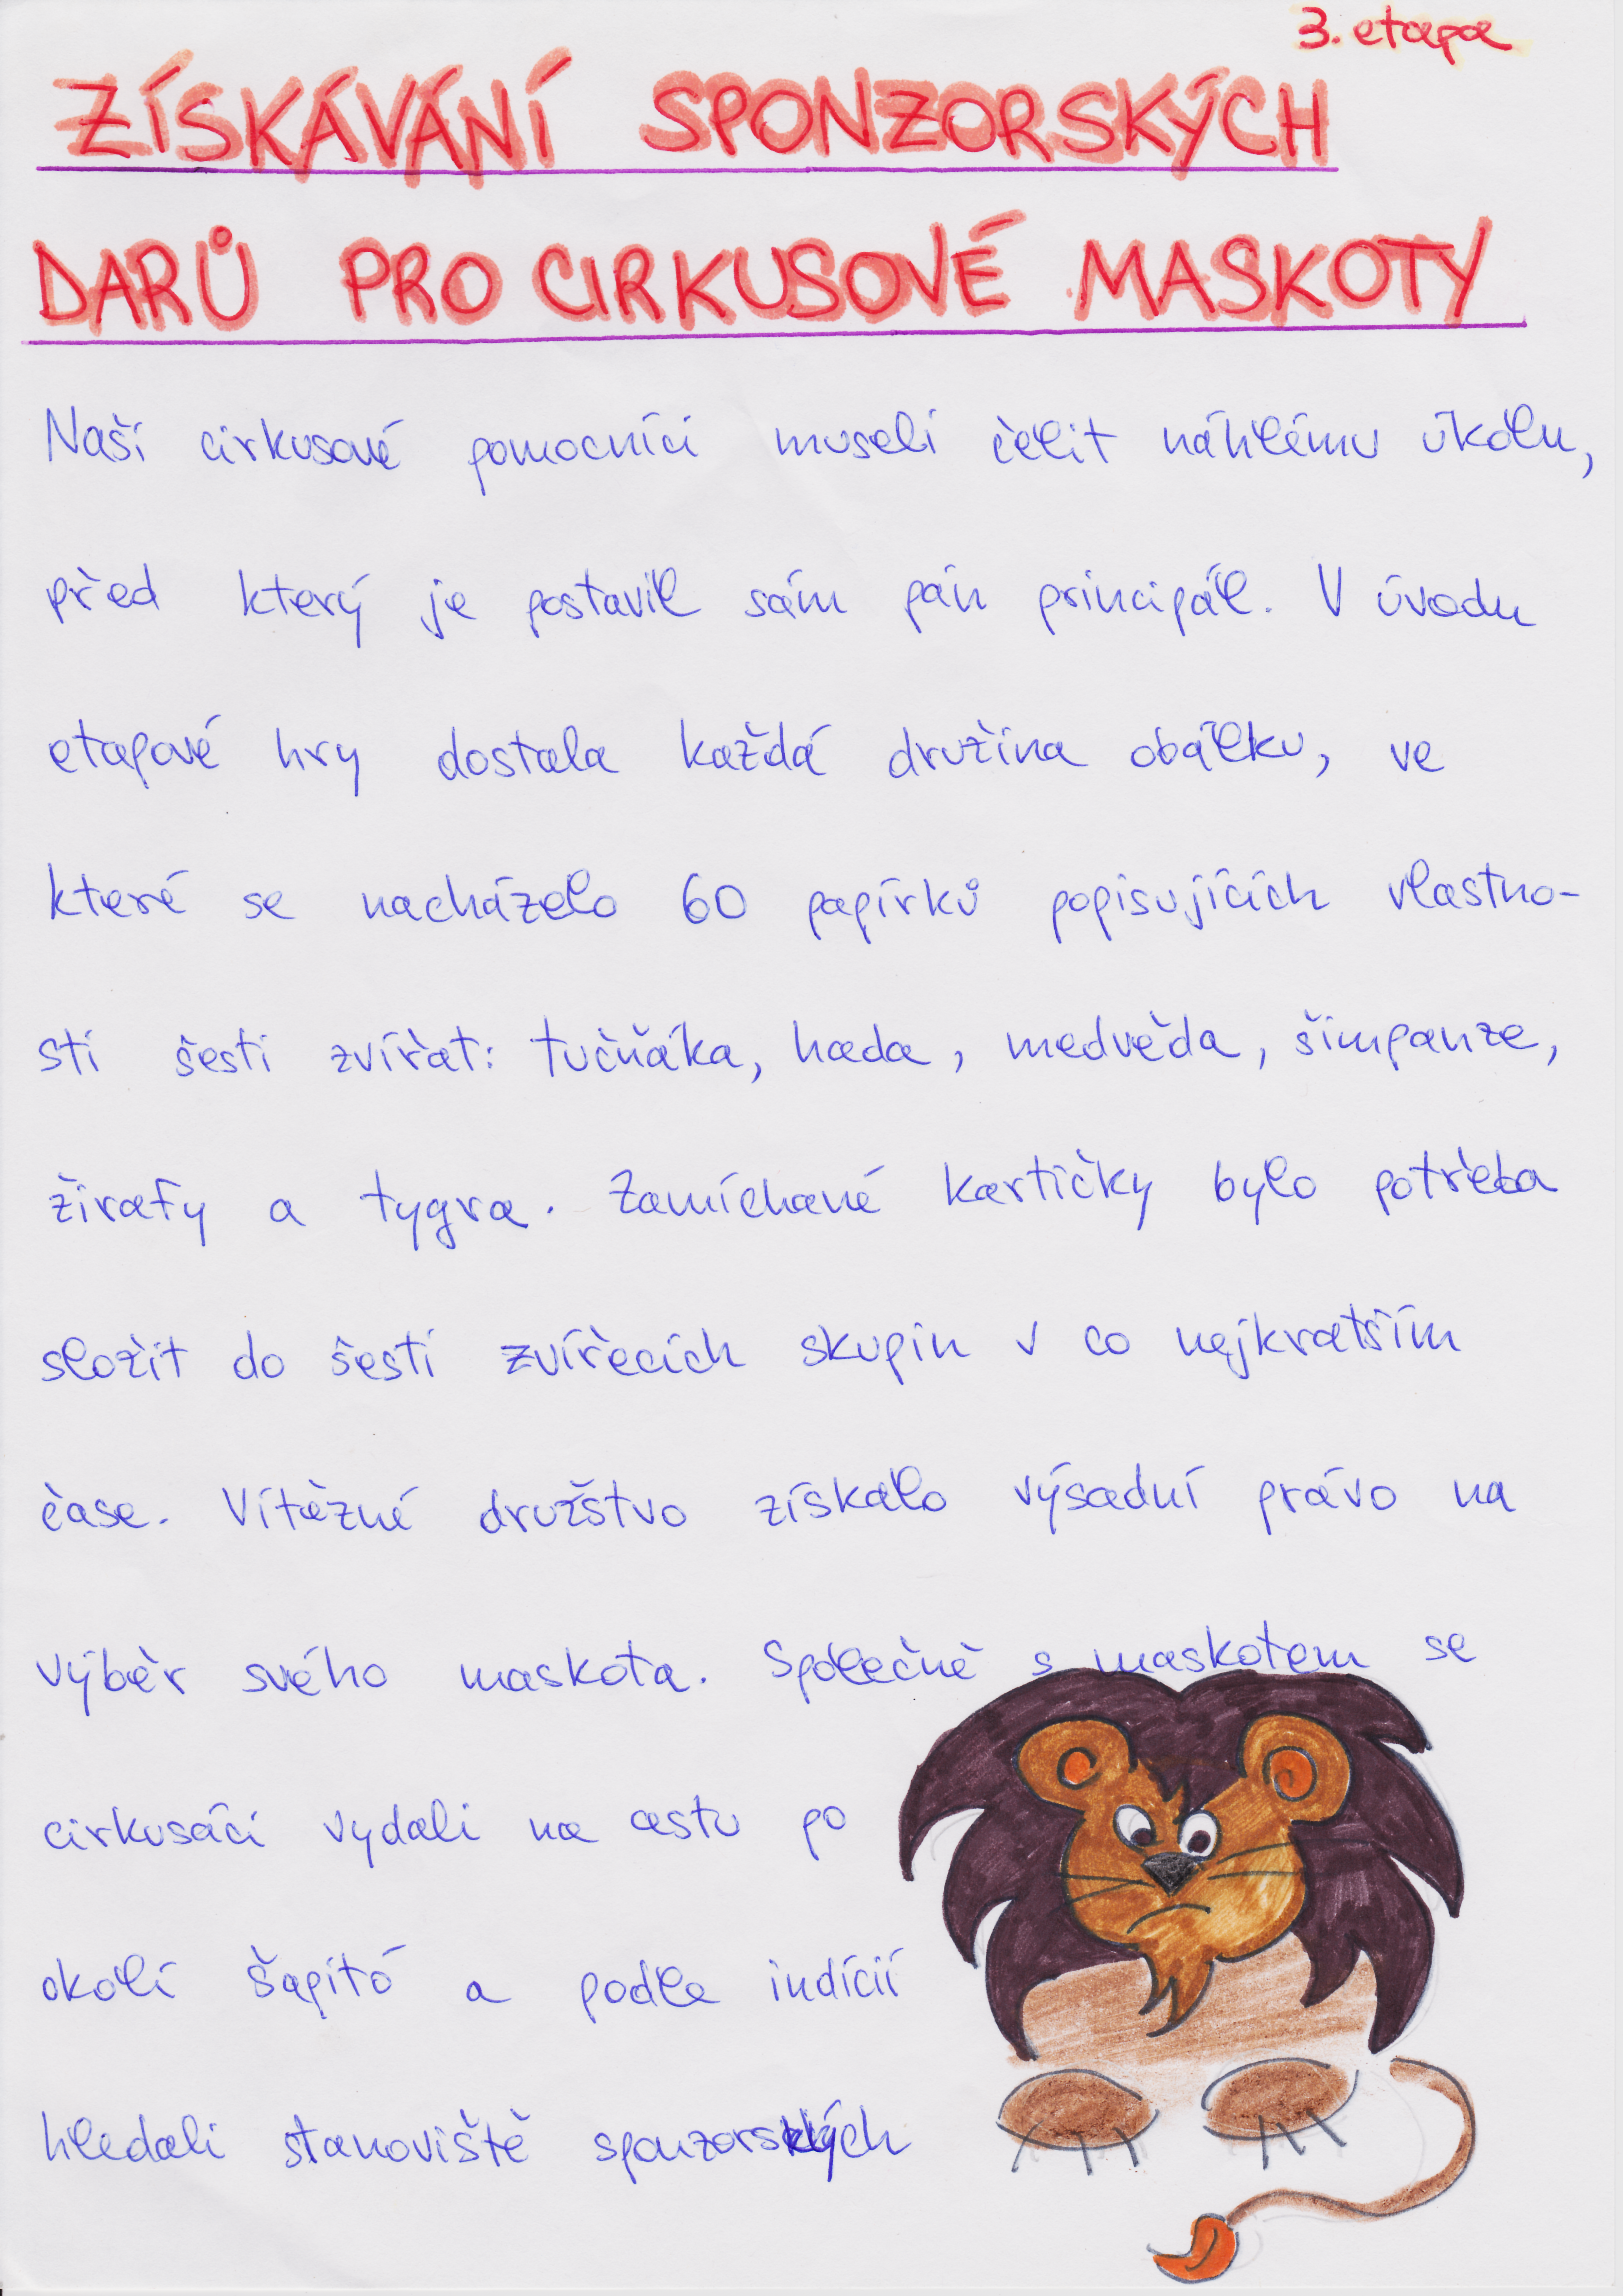 3. etapa
ZÍSKÁVÁNÍ SPONZORSKÝCH
DARŮ PRO CIRKUSOVÉ MASKOTY
Naši cirkusové pomocníci museli čelit náhlému úkolu,
před který je postavil sám pán principál. V úvodu
etapové hry dostala každá družina obálku, ve
které se nacházelo 60 papírků popisujících vlastno-
sti šesti zvířat: tučňáka, hada, medvěda, šimpanze,
žirafy a tygra. Zamíchané kartičky bylo potřeba
složit do šesti zvířecích skupin v co nejkratším
čase. Vítězné družstvo získalo výsadní právo na
výběr svého maskota. Společně s maskotem se
cirkusáci vydali na cestu po
okolí šapitó a podle indícií
hledali stanoviště sponzorských